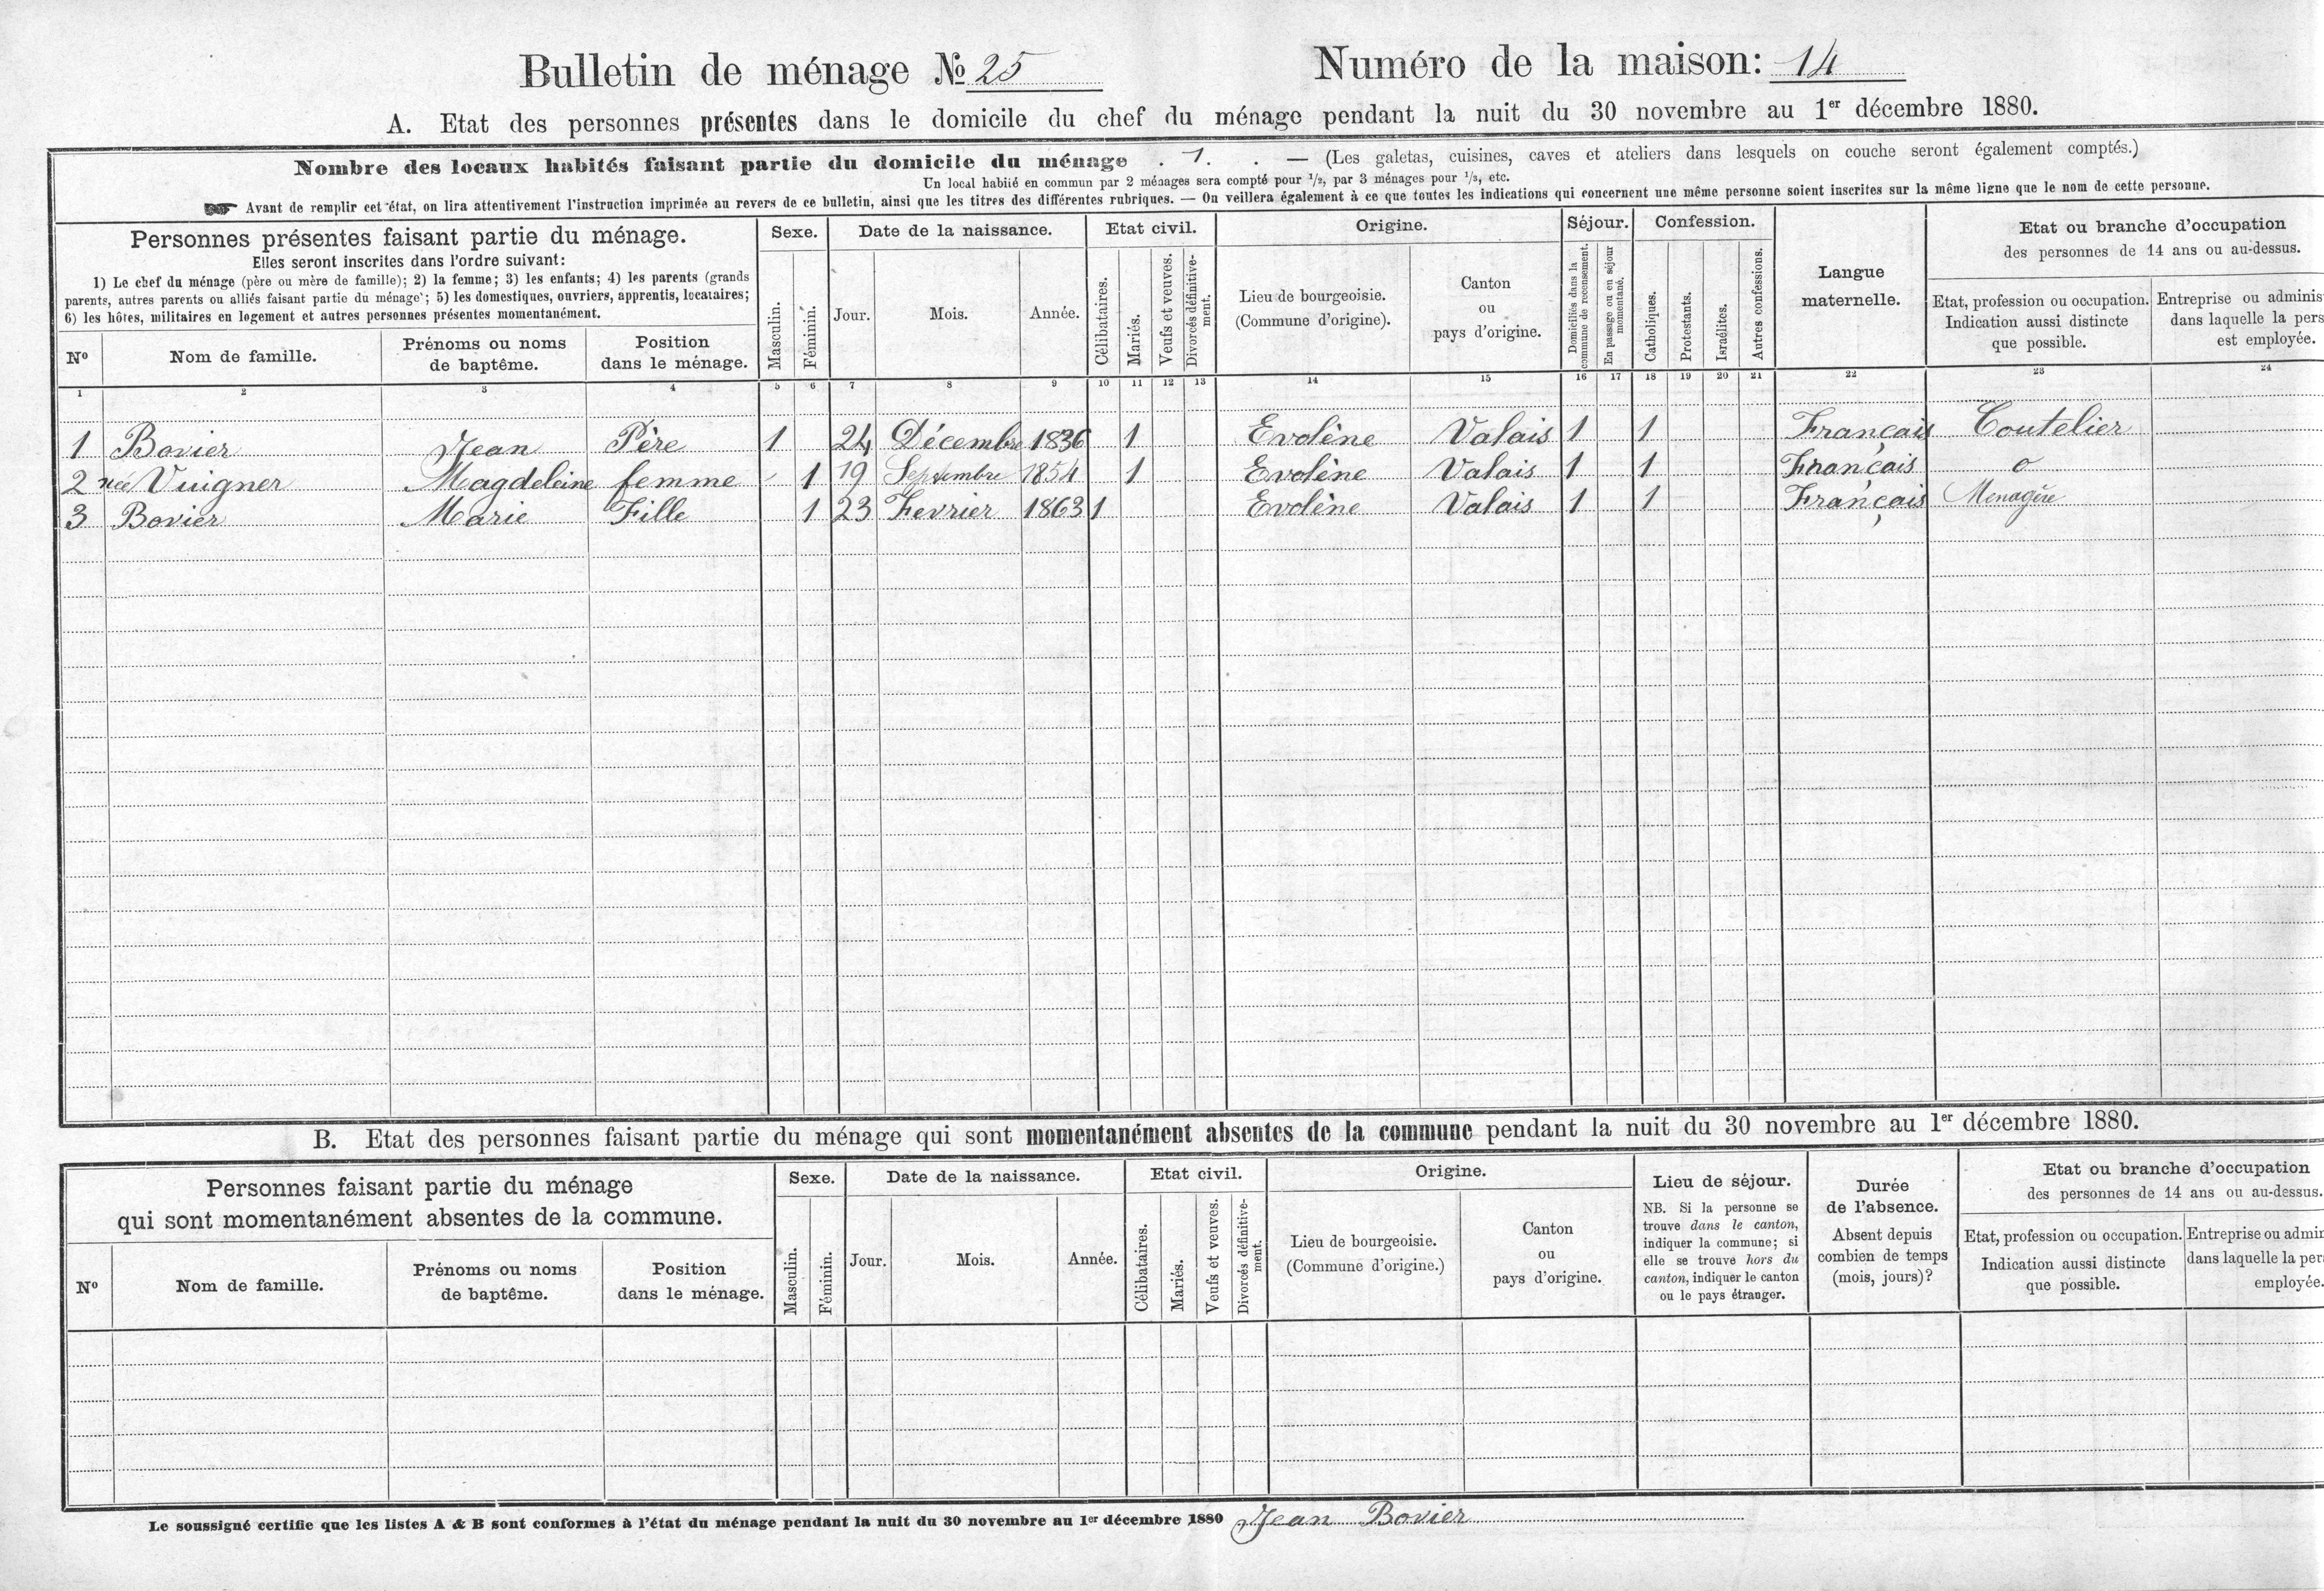 Bulletin de ménage № 25 Numéro de la maison: 14
A. Etat des personnes présentes dans le domicile du chef du ménage pendant la nuit du 30 novembre au 1er décembre 1880.
Nombre des locaux habités faisant partie du domicile du ménage . 1. . — (Les galetas, cuisines, caves et ateliers dans lesquels on couche seront également comptés.)
Un local habité en commun par 2 ménages sera compté pour 1/2, par 3 ménages pour 1/3, etc.
☛ Avant de remplir cet état, on lira attentivement l'instruction imprimée au revers de ce bulletin, ainsi que les titres des différentes rubriques. — On veillera également à ce que toutes les indications qui concernent une même personne soient inscrites sur la même ligne que le nom de cette personne.
Personnes présentes faisant partie du ménage.
Elles seront inscrites dans l'ordre suivant:
1) Le chef du ménage (père ou mère de famille); 2) la femme; 3) les enfants; 4) les parents (grands
parents, autres parents ou alliés faisant partie du ménage); 5) les domestiques, ouvriers, apprentis, locataires;
6) les hôtes, militaires en logement et autres personnes présentes momentanément.
Nº Nom de famille. Prénoms ou noms de baptême. Position dans le ménage.
Sexe. Masculin. Féminin.
Date de la naissance. Jour. Mois. Année.
Etat civil. Célibataires. Mariés. Veufs et veuves. Divorcés définitivement.
Origine. Lieu de bourgeoisie. (Commune d'origine). Canton ou pays d'origine.
Séjour. Domiciliés dans la commune de recensement. En passage ou en séjour momentané.
Confession. Catholiques. Protestants. Israélites. Autres confessions.
Langue maternelle.
Etat ou branche d'occupation
des personnes de 14 ans ou au-dessus.
Etat, profession ou occupation. Indication aussi distincte que possible.
Entreprise ou adminis
dans laquelle la pers
est employée.
1 2 3 4 5 6 7 8 9 10 11 12 13 14 15 16 17 18 19 20 21 22 23 24
1 Bovier Jean Père 1 24 Décembre 1836 1 Evolène Valais 1 1 Français Coutelier
2 née Vuigner Magdeleine femme 1 19 Septembre 1854 1 Evolène Valais 1 1 Français o
3 Bovier Marie Fille 1 23 Fevrier 1863 1 Evolène Valais 1 1 Français Menagère
B. Etat des personnes faisant partie du ménage qui sont momentanément absentes de la commune pendant la nuit du 30 novembre au 1er décembre 1880.
Personnes faisant partie du ménage
qui sont momentanément absentes de la commune.
Nº Nom de famille. Prénoms ou noms de baptême. Position dans le ménage.
Sexe. Masculin. Féminin.
Date de la naissance. Jour. Mois. Année.
Etat civil. Célibataires. Mariés. Veufs et veuves. Divorcés définitivement.
Origine. Lieu de bourgeoisie. (Commune d'origine.) Canton ou pays d'origine.
Lieu de séjour.
NB. Si la personne se
trouve dans le canton,
indiquer la commune; si
elle se trouve hors du
canton, indiquer le canton
ou le pays étranger.
Durée
de l'absence.
Absent depuis
combien de temps
(mois, jours)?
Etat ou branche d'occupation
des personnes de 14 ans ou au-dessus.
Etat, profession ou occupation. Indication aussi distincte que possible.
Entreprise ou admin
dans laquelle la per
employée.
Le soussigné certifie que les listes A & B sont conformes à l'état du ménage pendant la nuit du 30 novembre au 1er décembre 1880 Jean Bovier